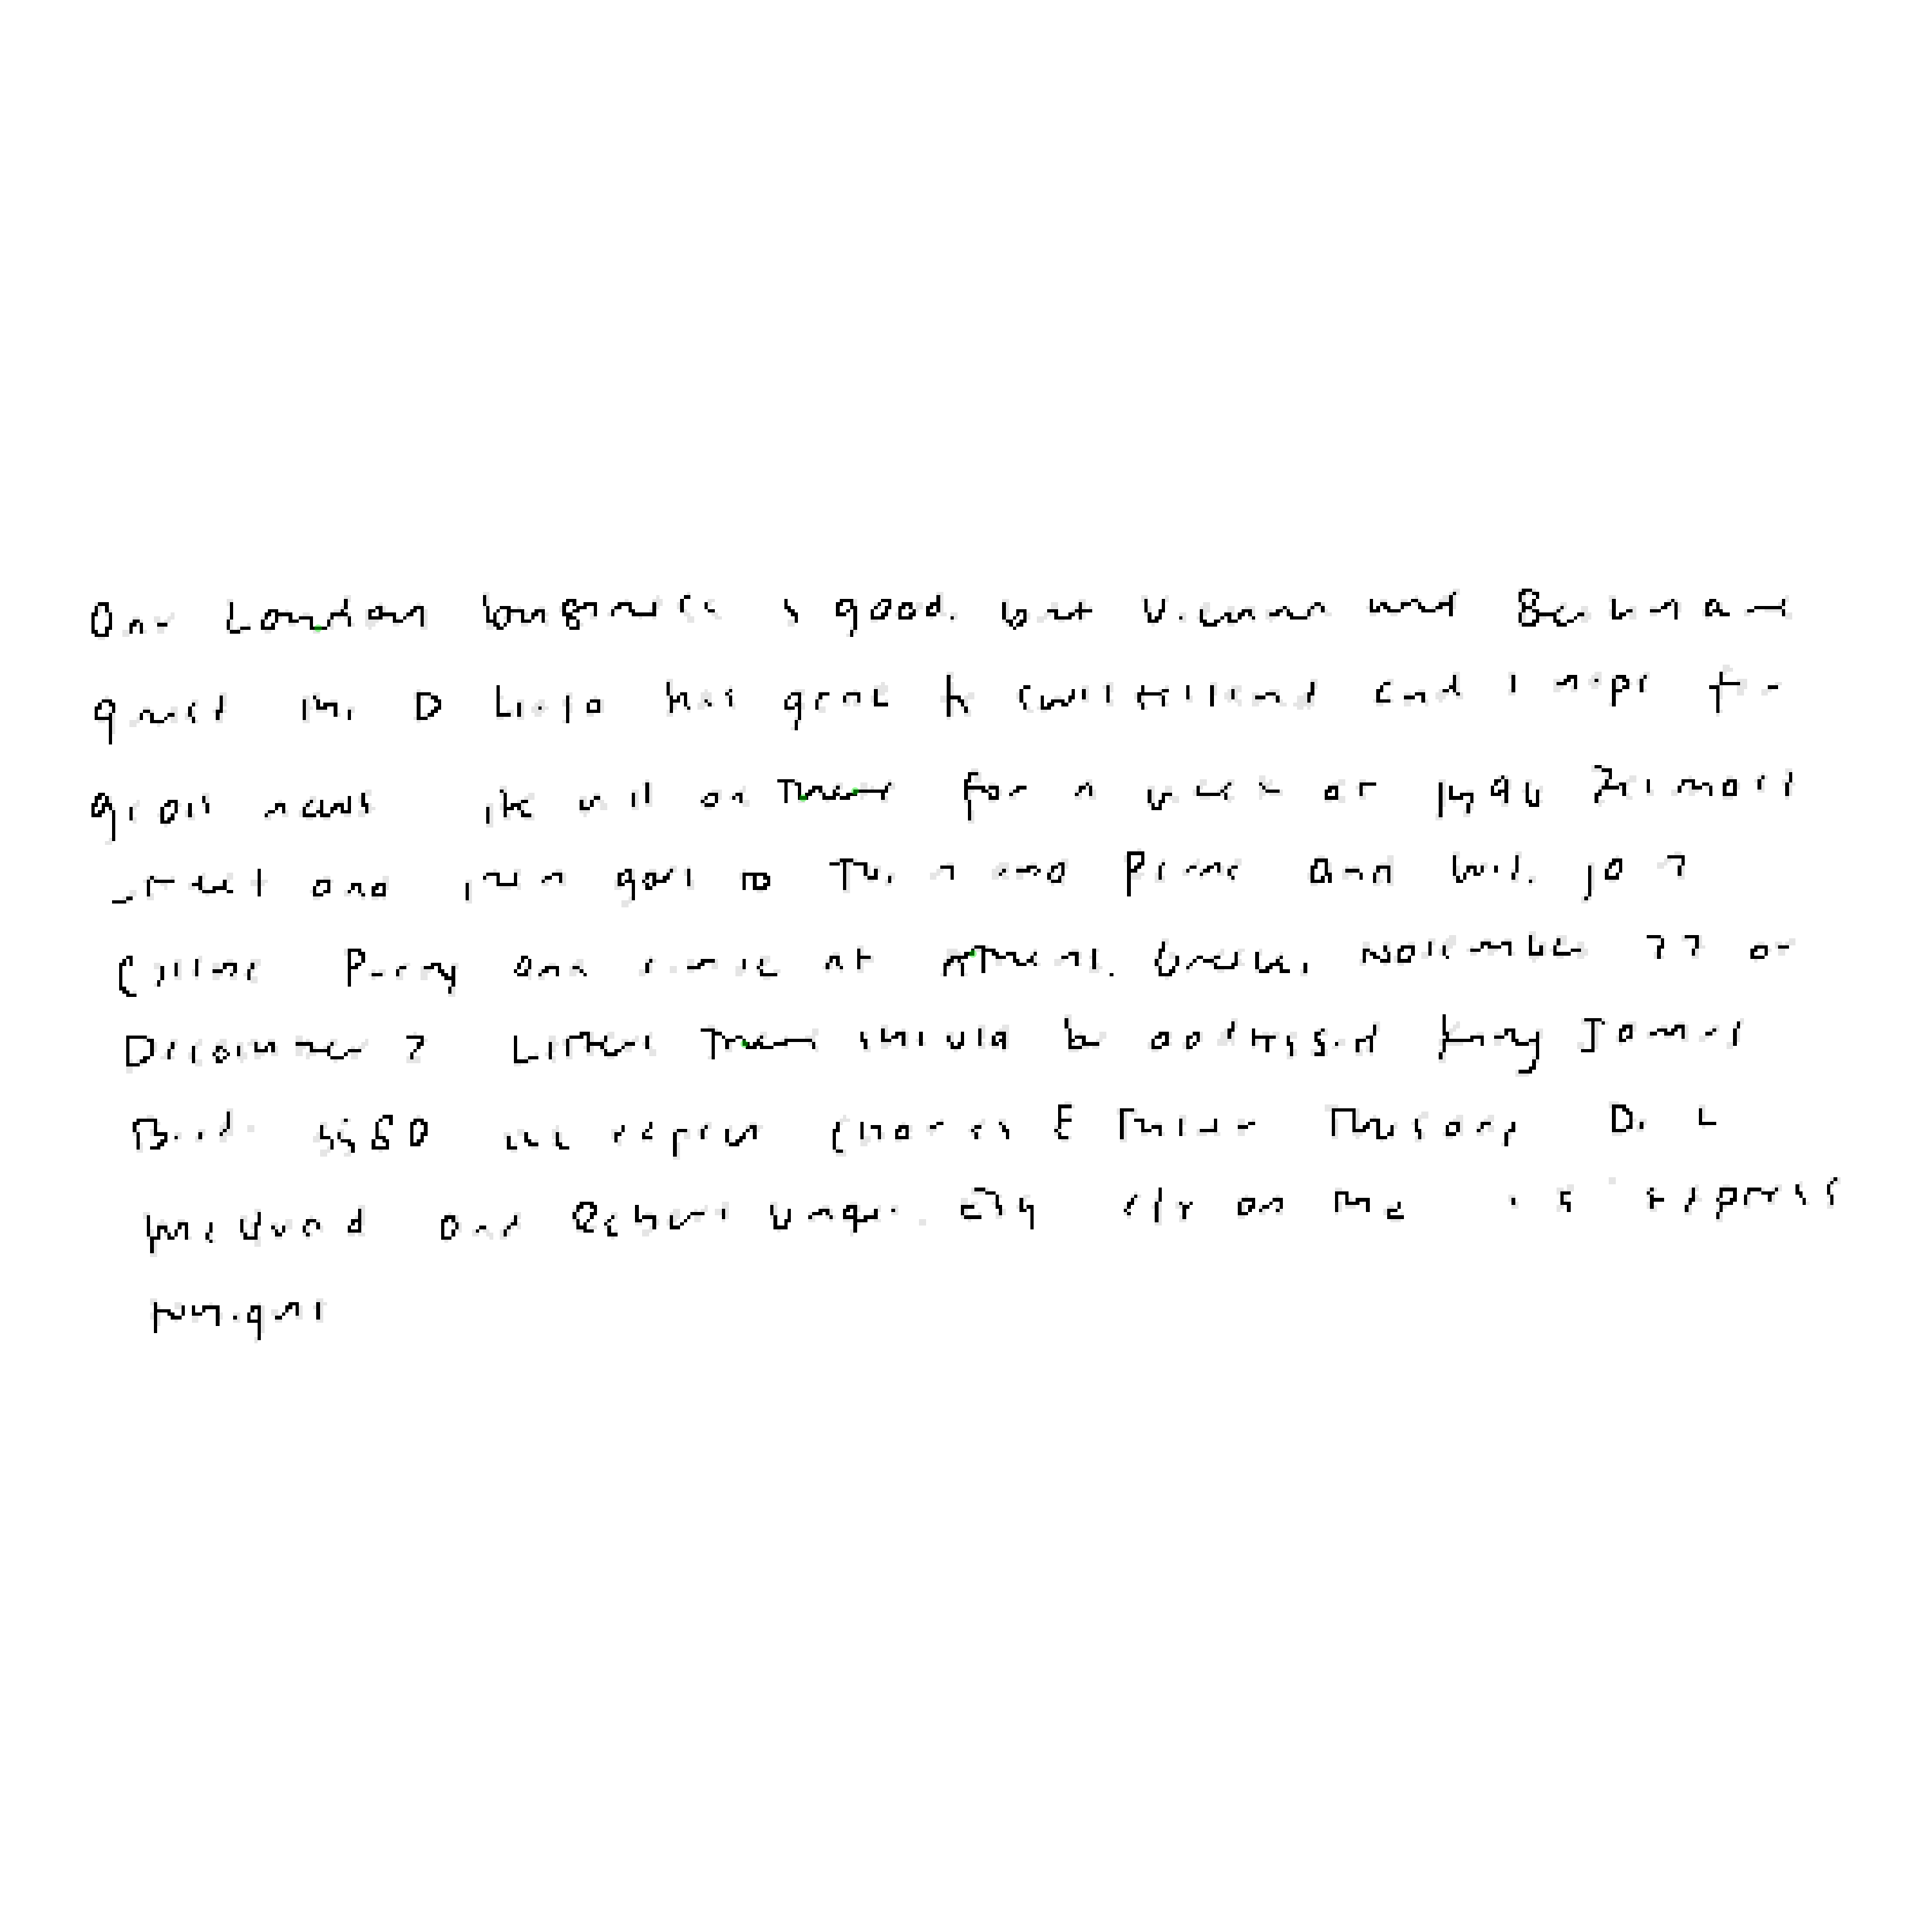 Our London business is good, but Vienna and Berlin are
quiet Mr. D Lloyd has gone to Switzerland and I hope for
good news He will be there for a week at 1496 Zermott
Street and then goes to Turin and Rome and will join
Colonel Parry and arrive at Athens, Greece, November 27 or
December 2 Letters there should be addressed King James
Blvd. 3580 We expect Charles E Fuller Tuesday Dr. L
McQuaid and Robert Unger. Esq left on the express
tonight